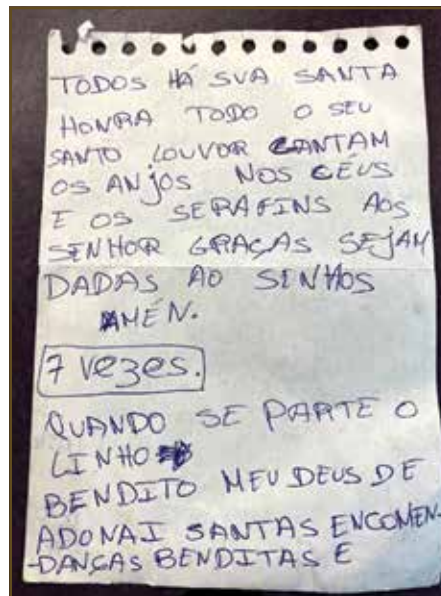 TODOS HÁ SUA SANTA
HONRA TODO O SEU
SANTO LOUVOR CANTAM
OS ANJOS NOS CÉUS
E OS SERAFINS AOS
SENHOR GRAÇAS SEJAM
DADAS AO SENHOS
AMÉN.
7 vezes.
QUANDO SE PARTE O
LINHO
BENDITO MEU DEUS DE
ADONAI SANTAS ENCOMEN-
-DANÇAS BENDITAS E